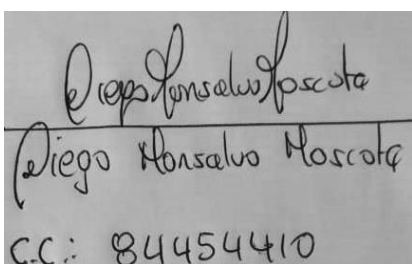 Diego Monsalvo Moscota
Diego Monsalvo Moscota
C.C.: 84454410